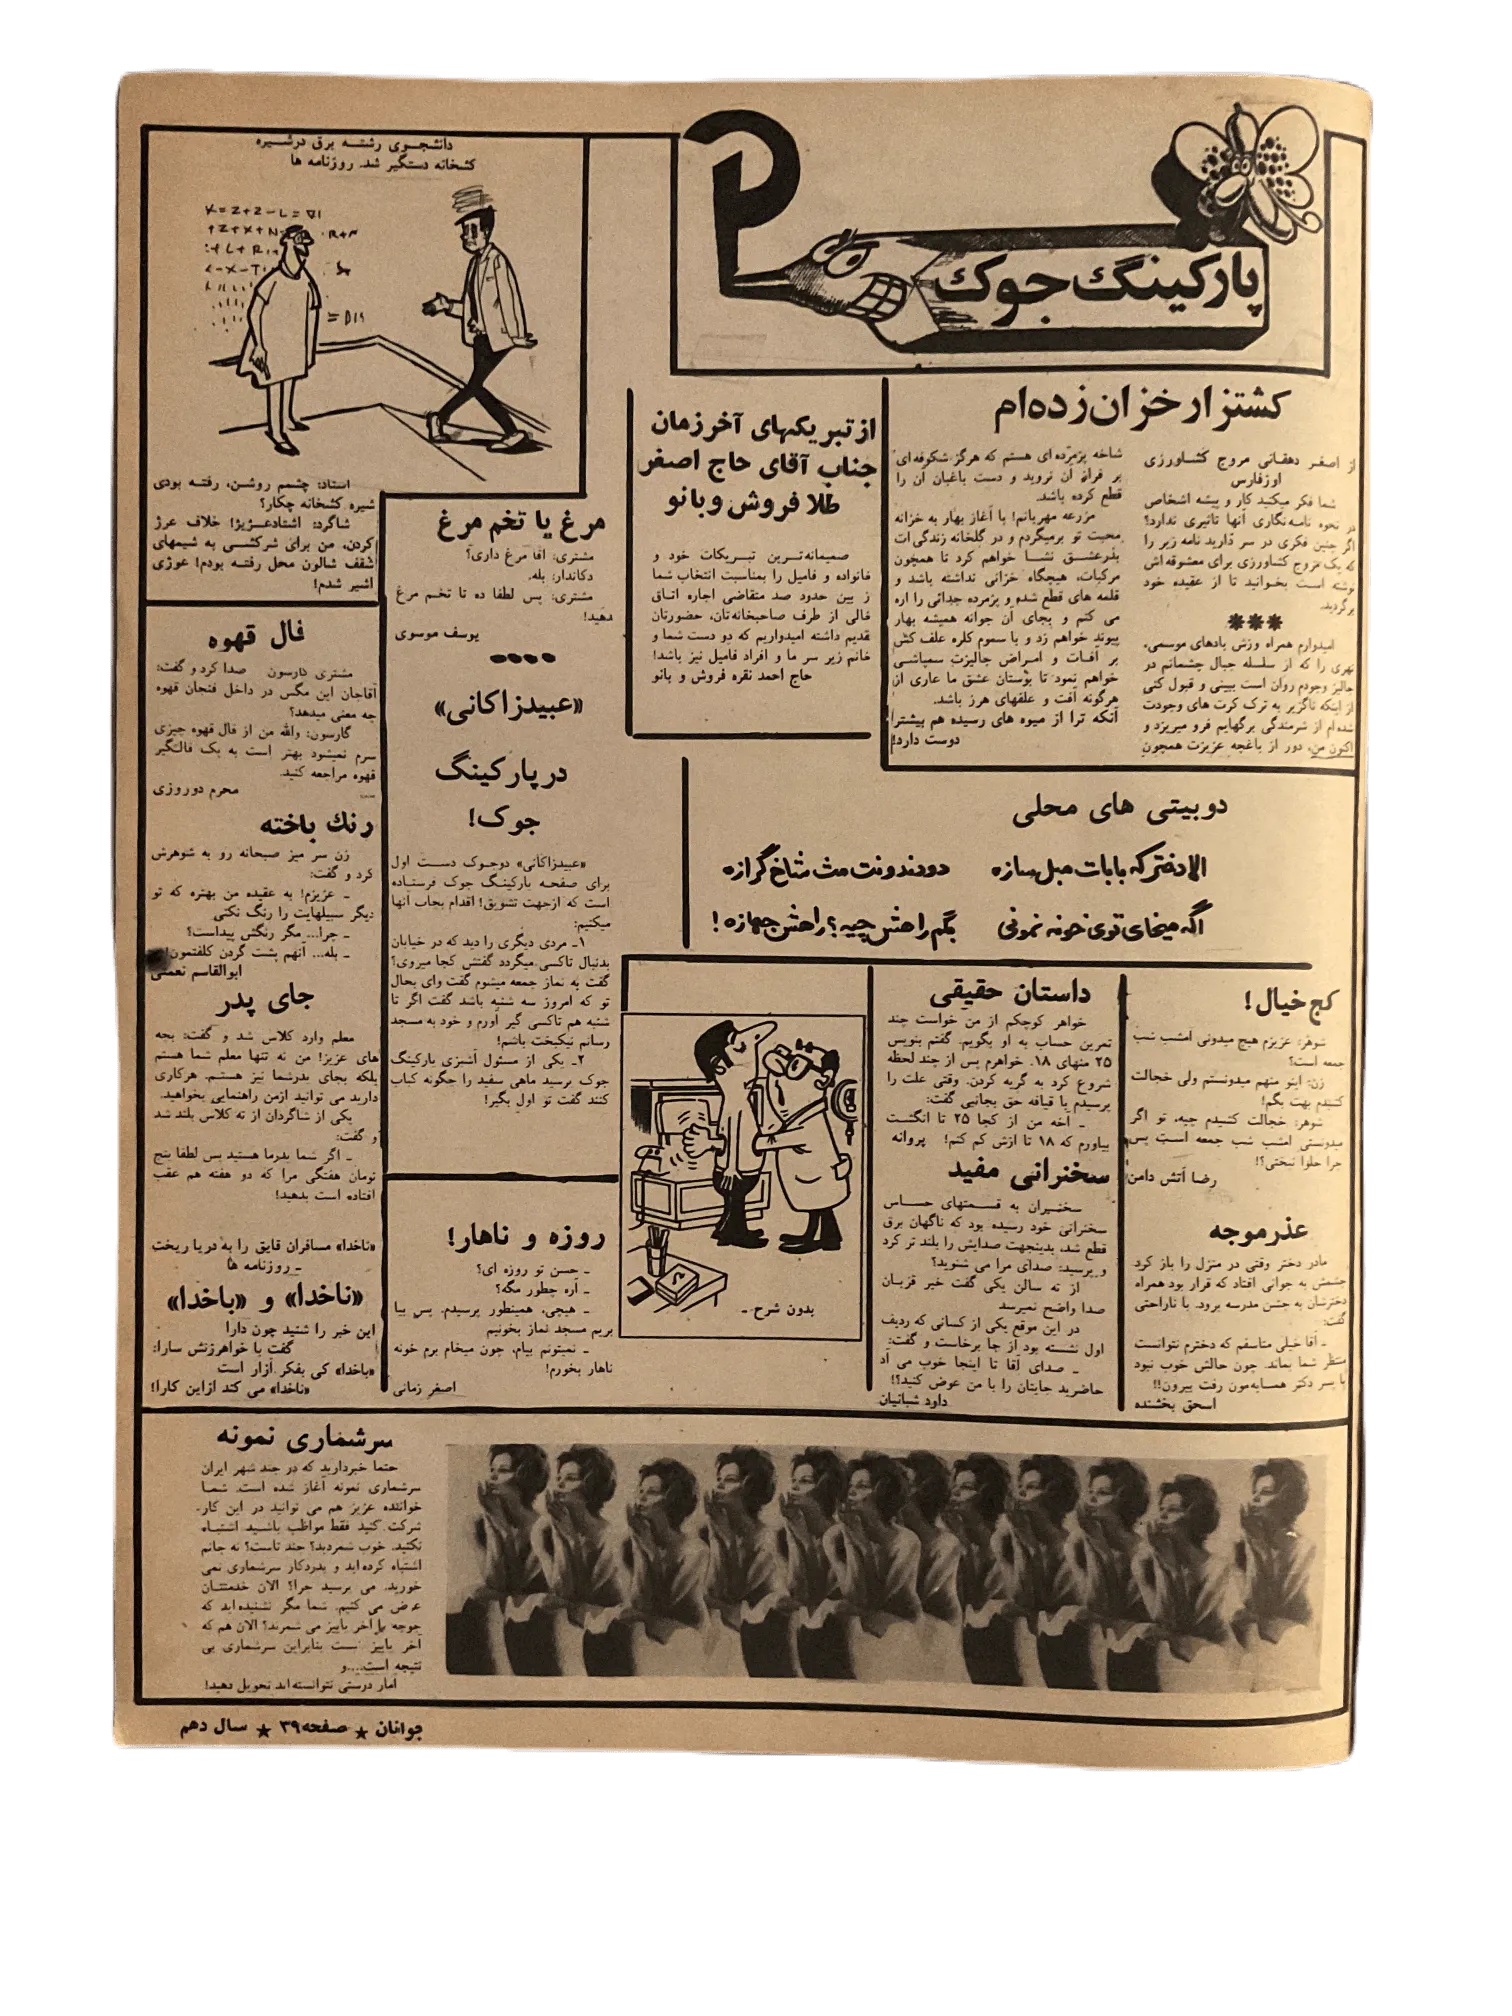 پارکینگ جوک
کشتزار خزان زده‌ام
از اصغر دهقانی مروج کشاورزی
اوزفارس
شما فکر میکنید کار و پیشه اشخاص
در نحوه نامه‌نگاری آنها تاثیری ندارد؟
اگر چنین فکری در سر دارید نامه زیر را
که یک مروج کشاورزی برای معشوقه‌اش
نوشته است بخوانید تا از عقیده خود
برگردید.
***
امیدوارم همراه وزش بادهای موسمی،
نهری را که از سلسله جبال چشمانم در
جالیز وجودم روان است ببینی و قبول کنی
از اینکه ناگزیر به ترک کرت های وجودت
شده‌ام از شرمندگی برگهایم فرو میریزد و
اکنون من، دور از باغچه عزیزت همچون
شاخه پژمرده‌ای هستم که هرگز شکوفه‌ای
بر فراز آن نروید و دست باغبان آن را
قطع کرده باشد.
مزرعه مهربانم! با آغاز بهار به خزانه
محبت تو برمیگردم و در گلخانه زندگی‌ات
بذرعشق نشا خواهم کرد تا همچون
مرکبات، هیچگاه خزانی نداشته باشد و
قلمه های قطع شده و پژمرده جدائی را اره
می کنم و بجای آن جوانه همیشه بهار
پیوند خواهم زد و با سموم کلره علف کش
بر آفات و امراض جالیزت سمپاشی
خواهم نمود تا بوستان عشق ما عاری از
هرگونه آفت و علفهای هرز باشد.
آنکه ترا از میوه های رسیده هم بیشتر
دوست دارد!
از تبریکهای آخر زمان
جناب آقای حاج اصغر
طلا فروش و بانو
صمیمانه‌ترین تبریکات خود و
خانواده و فامیل را بمناسبت انتخاب شما
ز بین حدود صد متقاضی اجاره اتاق
خالی از طرف صاحبخانه‌تان، حضورتان
تقدیم داشته امیدواریم که دو دست شما و
خانم زیر سر ما و افراد فامیل نیز باشد!
حاج احمد نقره فروش و بانو
دانشجوی رشته برق درشیره
کشخانه دستگیر شد. روزنامه ها
استاد: چشمم روشن، رفته بودی
شیره کشخانه چکار؟
شاگرد: اشتادعژیژ! خلاف عرژ
کردن، من برای شرکشی به شیمهای
شقف شالون محل رفته بودم! عوژی
اشیر شدم!
مرغ یا تخم مرغ
مشتری: آقا مرغ داری؟
دکاندار: بله.
مشتری: پس لطفا ده تا تخم مرغ
بدهید!
یوسف موسوی
«عبیدزاکانی»
در پارکینگ
جوک!
«عبیدزاکانی» دوجوک دست اول
برای صفحه پارکینگ جوک فرستاده
است که ازجهت تشویق! اقدام بچاپ آنها
میکنیم:
۱ـ مردی دیگری را دید که در خیابان
بدنبال تاکسی میگردد گفتش کجا میروی؟
گفت به نماز جمعه میشوم گفت وای بحال
تو که امروز سه شنبه باشد گفت اگر تا
شنبه هم تاکسی گیر آورم و خود به مسجد
رسانم نیکبخت باشم!
۲ـ یکی از مسئول آشپزی پارکینگ
جوک پرسید ماهی سفید را چگونه کباب
کنند گفت تو اول بگیر!
فال قهوه
مشتری گارسون صدا کرد و گفت:
آقاجان این مگس در داخل فنجان قهوه
چه معنی میدهد؟
گارسون: والله من از فال قهوه چیزی
سرم نمیشود بهتر است به یک فالگیر
قهوه مراجعه کنید.
محرم دوروزی
رنگ باخته
زن سر میز صبحانه رو به شوهرش
کرد و گفت:
ـ عزیزم! به عقیده من بهتره که تو
دیگر سبیلهایت را رنگ نکنی
ـ چرا... مگر رنگش پیداست؟
ـ بله... آنهم پشت گردن کلفتمون!
ابوالقاسم نعمتی
جای پدر
معلم وارد کلاس شد و گفت: بچه
های عزیز! من نه تنها معلم شما هستم
بلکه بجای پدرشما نیز هستم. هرکاری
دارید می توانید ازمن راهنمایی بخواهید.
یکی از شاگردان از ته کلاس بلند شد
و گفت:
ـ اگر شما پدرما هستید پس لطفا پنج
تومان هفتگی مرا که دو هفته هم عقب
افتاده است بدهید!
«ناخدا» مسافران قایق را به دریا ریخت
ـ روزنامه ها
«ناخدا» و «باخدا»
این خبر را شنید چون دارا
گفت با خواهرزنش سارا:
«باخدا» کی بفکر آزار است
«ناخدا» می کند ازاین کارا!
دوبیتی های محلی
الا دختر که بابات مبل سازه
دو دندونت مث شاخ گرازه
اگه میخای توی خونه نمونی
بگم راحتش چیه؟ راحتش جهازه!
کج خیال!
شوهر: عزیزم هیچ میدونی امشب شب
جمعه است؟
زن: اینو منهم میدونستم ولی خجالت
کشیدم بهت بگم!
شوهر: خجالت کشیدم چیه، تو اگر
میدونستی امشب شب جمعه است پس
چرا حلوا نپختی؟!
رضا آتش دامن
عذر موجه
مادر دختر وقتی در منزل را باز کرد
چشمش به جوانی افتاد که قرار بود همراه
دخترشان به جشن مدرسه برود. با ناراحتی
گفت:
ـ آقا خیلی متاسفم که دخترم نتوانست
منتظر شما بماند. چون حالش خوب نبود
با پسر دکتر همسایه‌مون رفت بیرون!!
اسحق بخشنده
داستان حقیقی
خواهر کوچکم از من خواست چند
تمرین حساب به او بگویم. گفتم بنویس
۲۵ منهای ۱۸. خواهرم پس از چند لحظه
شروع کرد به گریه کردن. وقتی علت را
پرسیدم با قیافه حق بجانبی گفت:
ـ آخه من از کجا ۲۵ تا انگشت
بیاورم که ۱۸ تا ازش کم کنم! پروانه
سخنرانی مفید
سخنران به قسمتهای حساس
سخنرانی خود رسیده بود که ناگهان برق
قطع شد، بدینجهت صدایش را بلند تر کرد
و پرسید: صدای مرا می شنوید؟
از ته سالن یکی گفت خیر قربان
صدا واضح نمیرسد
در این موقع یکی از کسانی که ردیف
اول نشسته بود از جا برخاست و گفت:
ـ صدای آقا تا اینجا خوب می آد
حاضرید جایتان را با من عوض کنید؟!
داود شبانیان
بدون شرح ـ
روزه و ناهار!
ـ حسن تو روزه ای؟
ـ آره چطور مگه؟
ـ هیچی، همینطور پرسیدم. پس بیا
بریم مسجد نماز بخونیم
ـ نمیتونم بیام، چون میخام برم خونه
ناهار بخورم!
اصغر زمانی
سرشماری نمونه
حتما خبردارید که در چند شهر ایران
سرشماری نمونه آغاز شده است. شما
خواننده عزیز هم می توانید در این کار-
شرکت کنید فقط مواظب باشید اشتباه
نکنید. خوب شمردید؟ چند تاست؟ نه جانم
اشتباه کرده اید و بدردکار سرشماری نمی
خورید. می پرسید چرا؟ الان خدمتتان
عرض می کنیم. شما مگر نشنیده اید که
جوجه را آخر پاییز می شمرند؟ الان هم که
آخر پاییز نیست بنابراین سرشماری بی
نتیجه است....و
آمار درستی نتوانسته اید تحویل دهید!
جوانان ★ صفحه ۳۹ ★ سال دهم